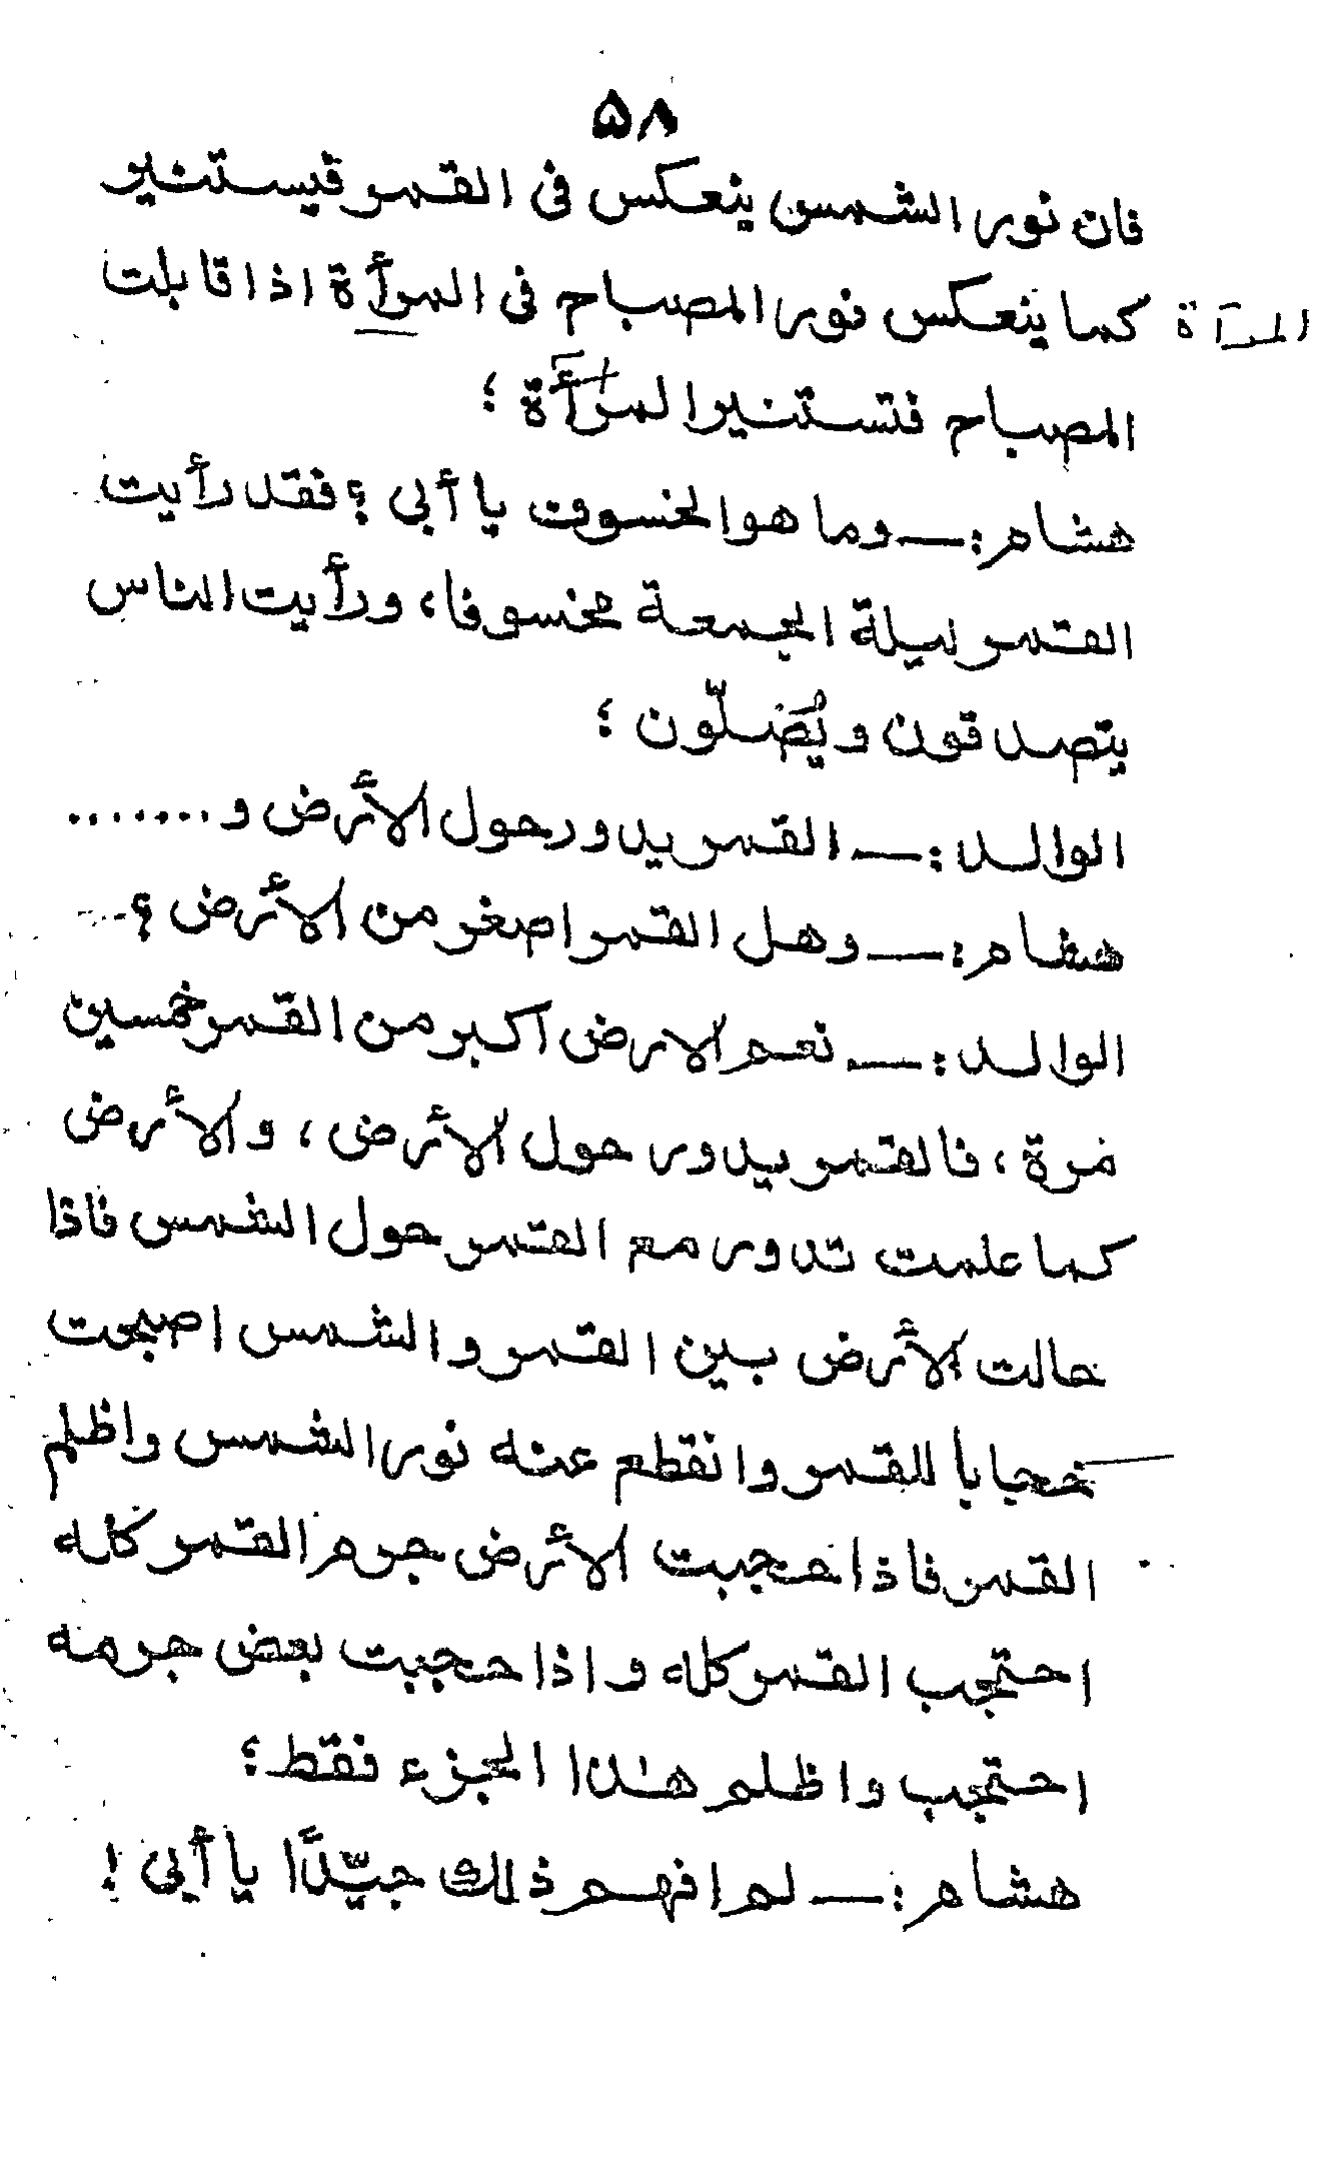 ۵۸
فان نور الشمس ينعكس فى القمر فيستنير
كما ينعكس نور المصباح فى المرأة اذا قابلت
المرآة
المصباح فتستنير المرأة ؛
هشام :— وما هو الخسوف يا أبى ؟ فقد رأيت
القمر ليلة الجمعة مخسوفا، ورأيت الناس
يتصدقون ويُصَلّون ؛
الوالد :— القمر يدور حول الأرض و .......
هشام :— وهل القمر اصغر من الأرض ؟
الوالد :— نعم الارض اكبر من القمر خمسين
مرة ، فالقمر يدور حول الأرض ، والأرض
كما علمت تدور مع القمر حول الشمس فاذا
حالت الأرض بين القمر والشمس اصبحت
حجاباً للقمر وانقطع عنه نور الشمس واظلم
القمر فاذا حجبت الأرض جرم القمر كله
احتجب القمر كله واذا حجبت بعض جرمه
احتجب واظلم هذا الجزء فقط ؛
هشام :— لم افهم ذلك جيّدًا يا أبى !